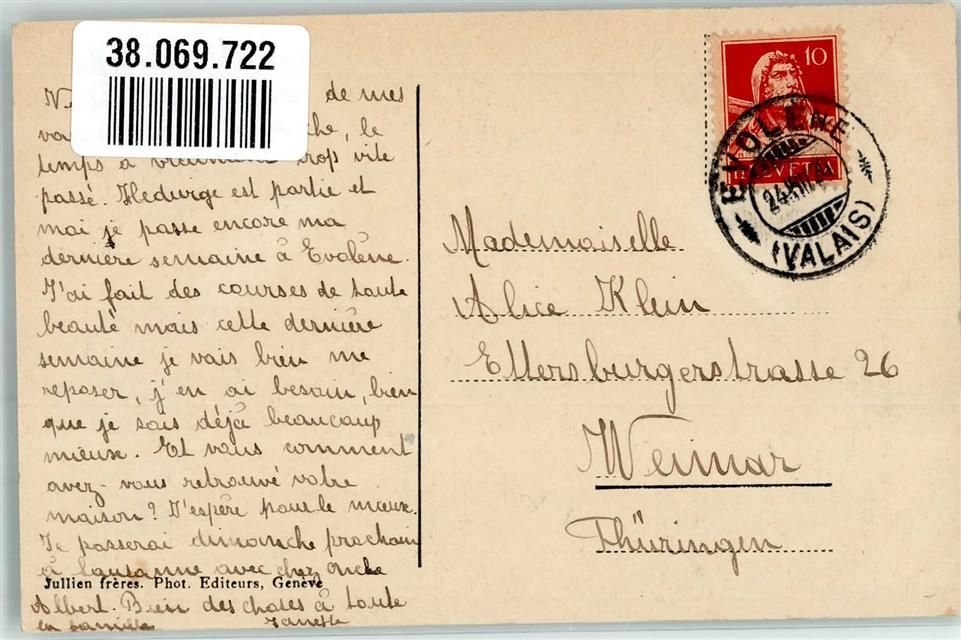 38.069.722
de mes
le
temps a vraiment trop vite
passé. Hedwige est partie et
moi je passe encore ma
dernière semaine à Evolène.
J'ai fait des courses de toute
beauté mais cette dernière
semaine je vais bien me
reposer, j'en ai besoin, bien
que je sois déjà beaucoup
mieux. Et vous comment
avez-vous retrouvé votre
maison? J'espère pour le mieux.
Je passerai dimanche prochain
à Lausanne avec chez oncle
Albert. Bien des choses à toute
la famille
Jullien frères. Phot. Editeurs, Genève
10
HELVETIA
EVOLÈNE
(VALAIS)
Mademoiselle
Alice Klein
Ettersburgerstrasse 26
Weimar
Thüringen